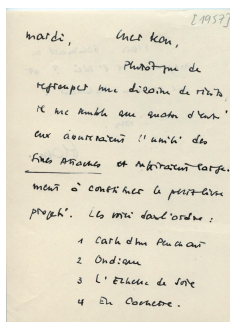 [1957]
mardi, Cher Jean,
Plutôt que de
regrouper une dizaine de récits,
il me semble que quatre d'entre
eux assureraient l'unité des
Fines Attaches et suffiraient large-
ment à constituer le petit livre
projeté. Les voici dans l'ordre :
1
2 Ondique
3 L'Echelle de Soie
4 En Cachette.